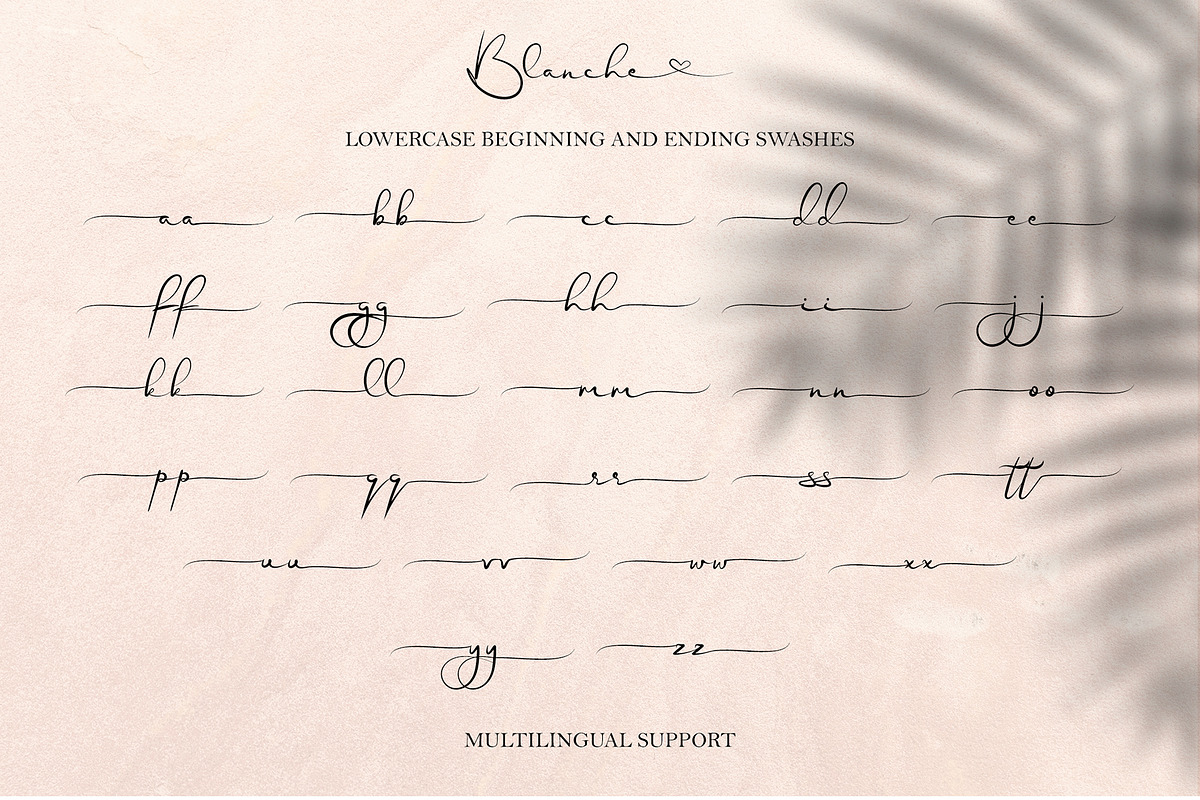 Blanche
LOWERCASE BEGINNING AND ENDING SWASHES
aa bb cc dd ee
ff gg hh ii jj
kk ll mm nn oo
pp qq rr ss tt
uu vv ww xx
yy zz
MULTILINGUAL SUPPORT